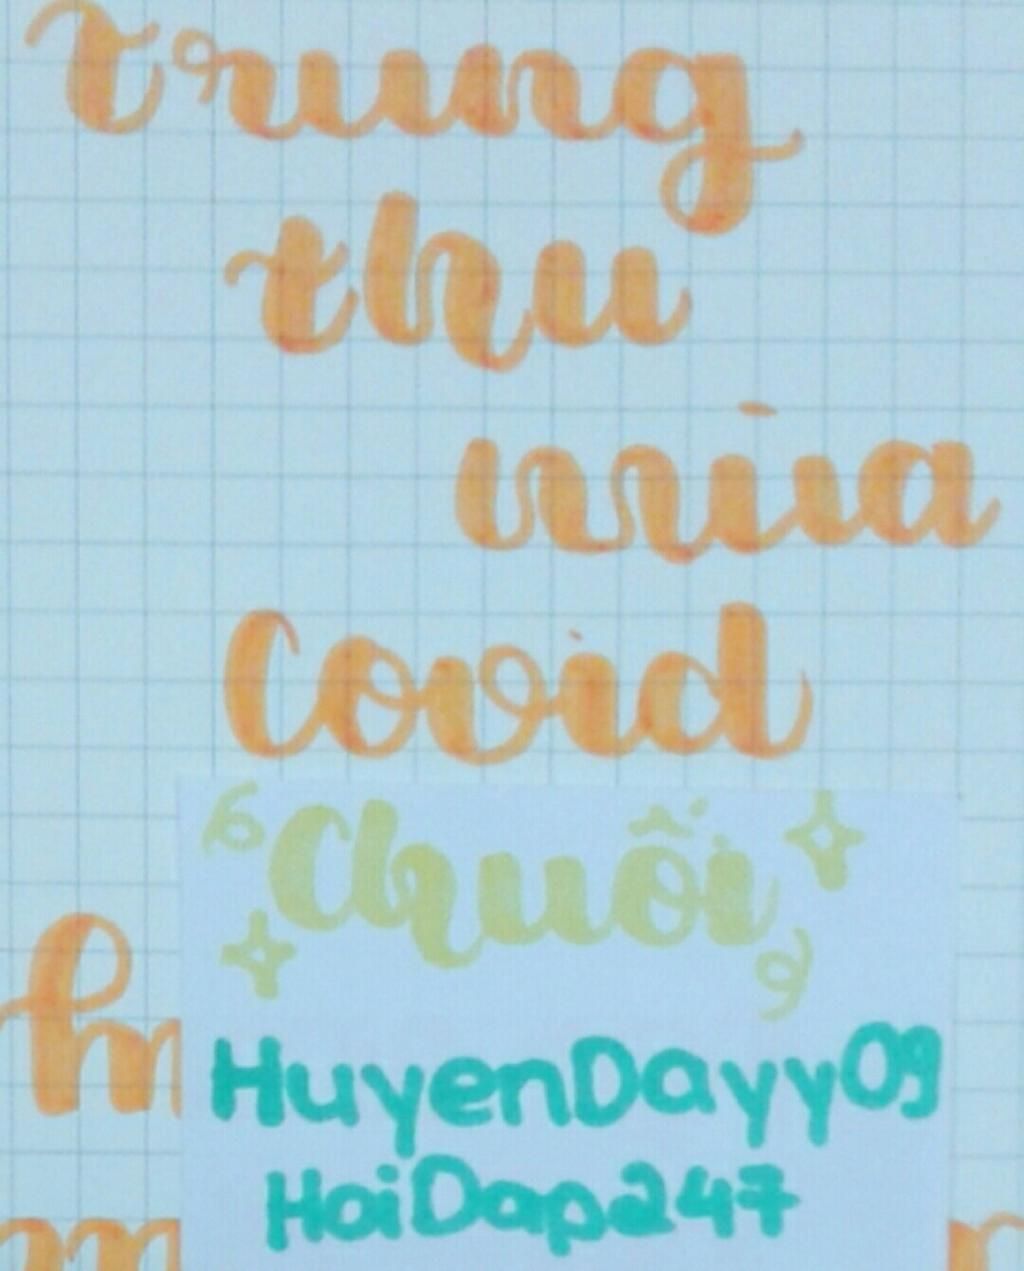 trung
thu
mùa
Covid
Chuối
HuyenDayy09
HoiDap247